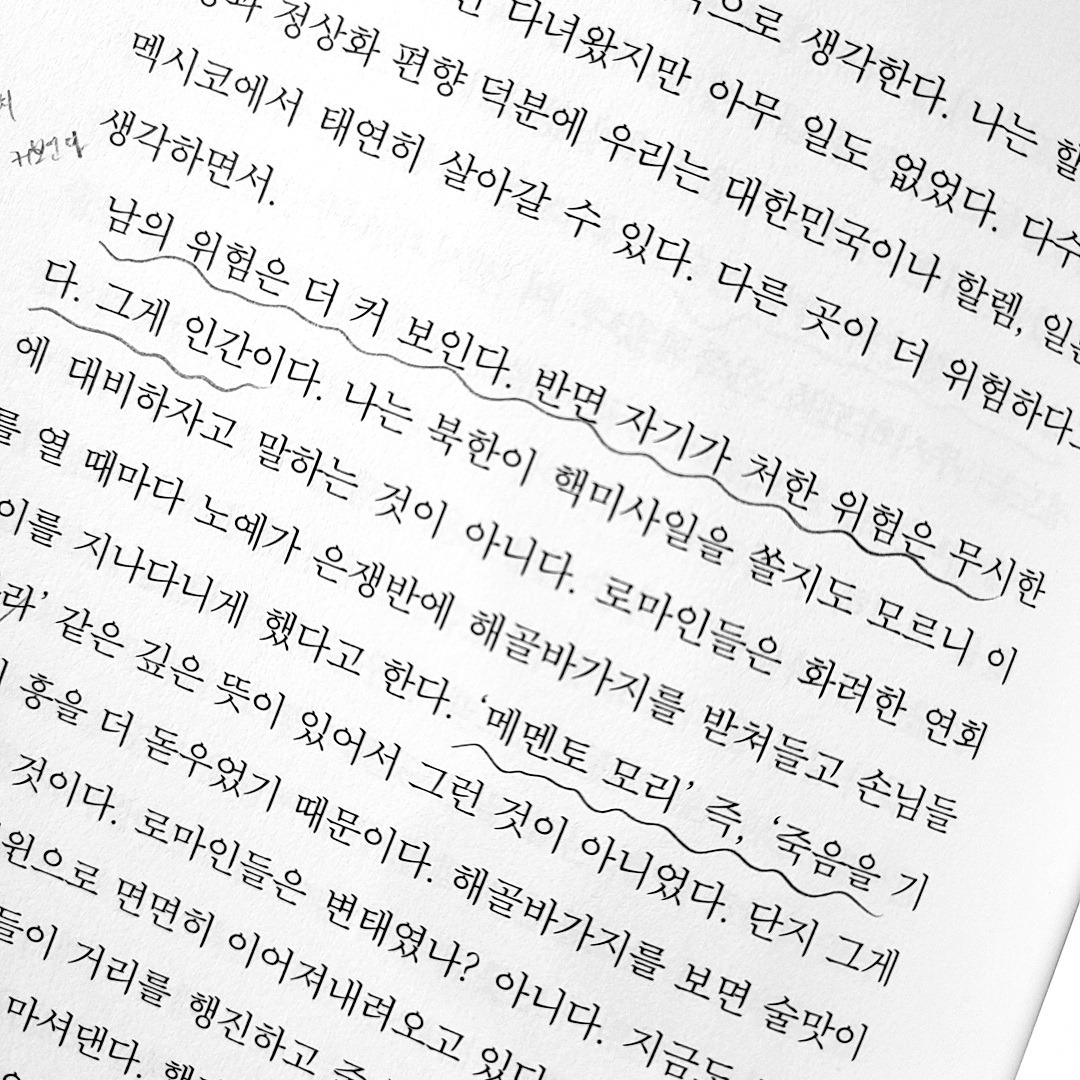 으로 생각한다. 나는 할
다녀왔지만 아무 일도 없었다. 다수
정상화 편향 덕분에 우리는 대한민국이나 할렘,
멕시코에서 태연히 살아갈 수 있다. 다른 곳이 더 위험하다
생각하면서.
남의 위험은 더 커 보인다. 반면 자기가 처한 위험은 무시한
다. 그게 인간이다. 나는 북한이 핵미사일을 쏠지도 모르니 이
에 대비하자고 말하는 것이 아니다. 로마인들은 화려한 연회
를 열 때마다 노예가 은쟁반에 해골바가지를 받쳐들고 손님들
이를 지나다니게 했다고 한다. ‘메멘토 모리’ 즉, ‘죽음을 기
라’ 같은 깊은 뜻이 있어서 그런 것이 아니었다. 단지 그게
흥을 더 돋우었기 때문이다. 해골바가지를 보면 술맛이
것이다. 로마인들은 변태였나? 아니다. 지금도
원으로 면면히 이어져내려오고 있다
들이 거리를 행진하고
마셔댄다.